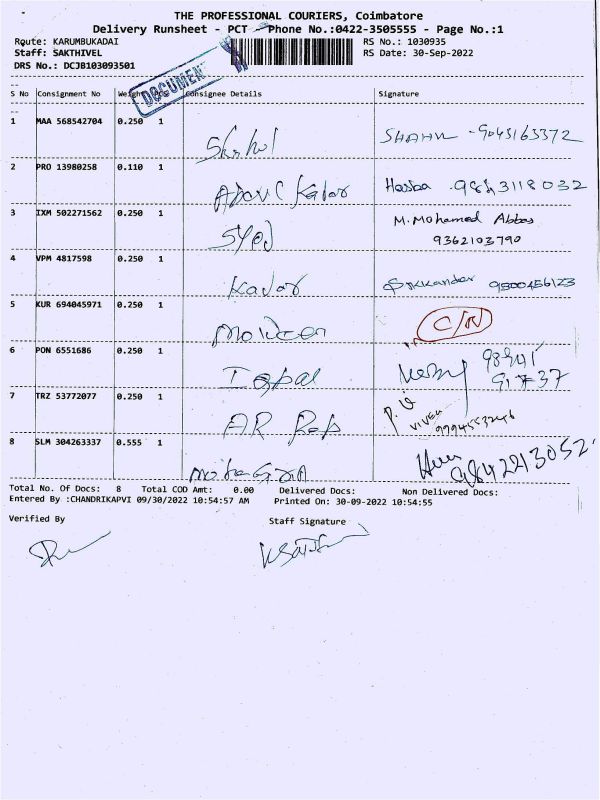 THE PROFESSIONAL COURIERS, Coimbatore
Delivery Runsheet - PCT - Phone No.:0422-3505555 - Page No.:1
Route: KARUMBUKADAI RS No.: 1030935
Staff: SAKTHIVEL RS Date: 30-Sep-2022
DRS No.: DCJB103093501
DOCUMENT
S No Consignment No Weight PCS Consignee Details Signature
1 MAA 568542704 0.250 1 9043163372
2 PRO 13980258 0.110 1 Kader Hasba 9843118032
3 IXM 502271562 0.250 1 Syed M. Mohamed Abbas
9362103790
4 VPM 4817598 0.250 1 Kadar Sikkandar 9500456123
5 KUR 694045971 0.250 1 C/N
6 PON 6551686 0.250 1 Iqbal
7 TRZ 53772077 0.250 1 AR P.V
VIVEK
8 SLM 304263337 0.555 1 9842213052
Total No. Of Docs: 8 Total COD Amt: 0.00 Delivered Docs: Non Delivered Docs:
Entered By :CHANDRIKAPVI 09/30/2022 10:54:57 AM Printed On: 30-09-2022 10:54:55
Verified By Staff Signature